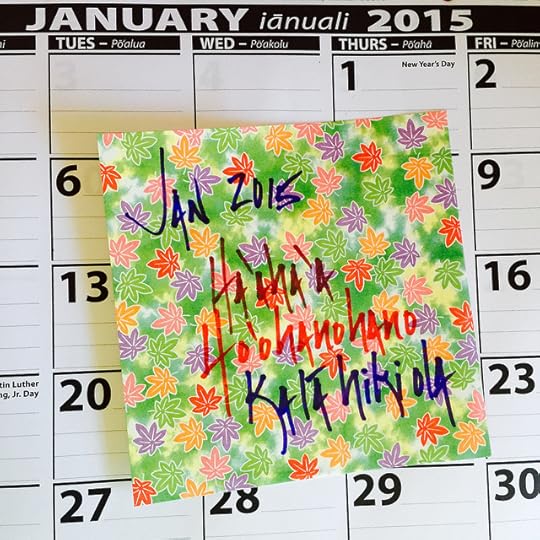 JANUARY iānuali 2015
TUES – Pō‘alua WED – Pō‘akolu THURS – Pō‘ahā FRI – Pō‘alim
1 New Year's Day 2
6 9
13 16
tin Luther
ng, Jr. Day
20 23
27 28 29 30
JAN 2015
Ha'aha'a
Ho'ohanohano
Kalāhikiola